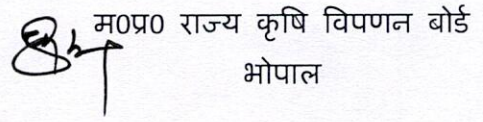 म0प्र0 राज्य कृषि विपणन बोर्ड
भोपाल